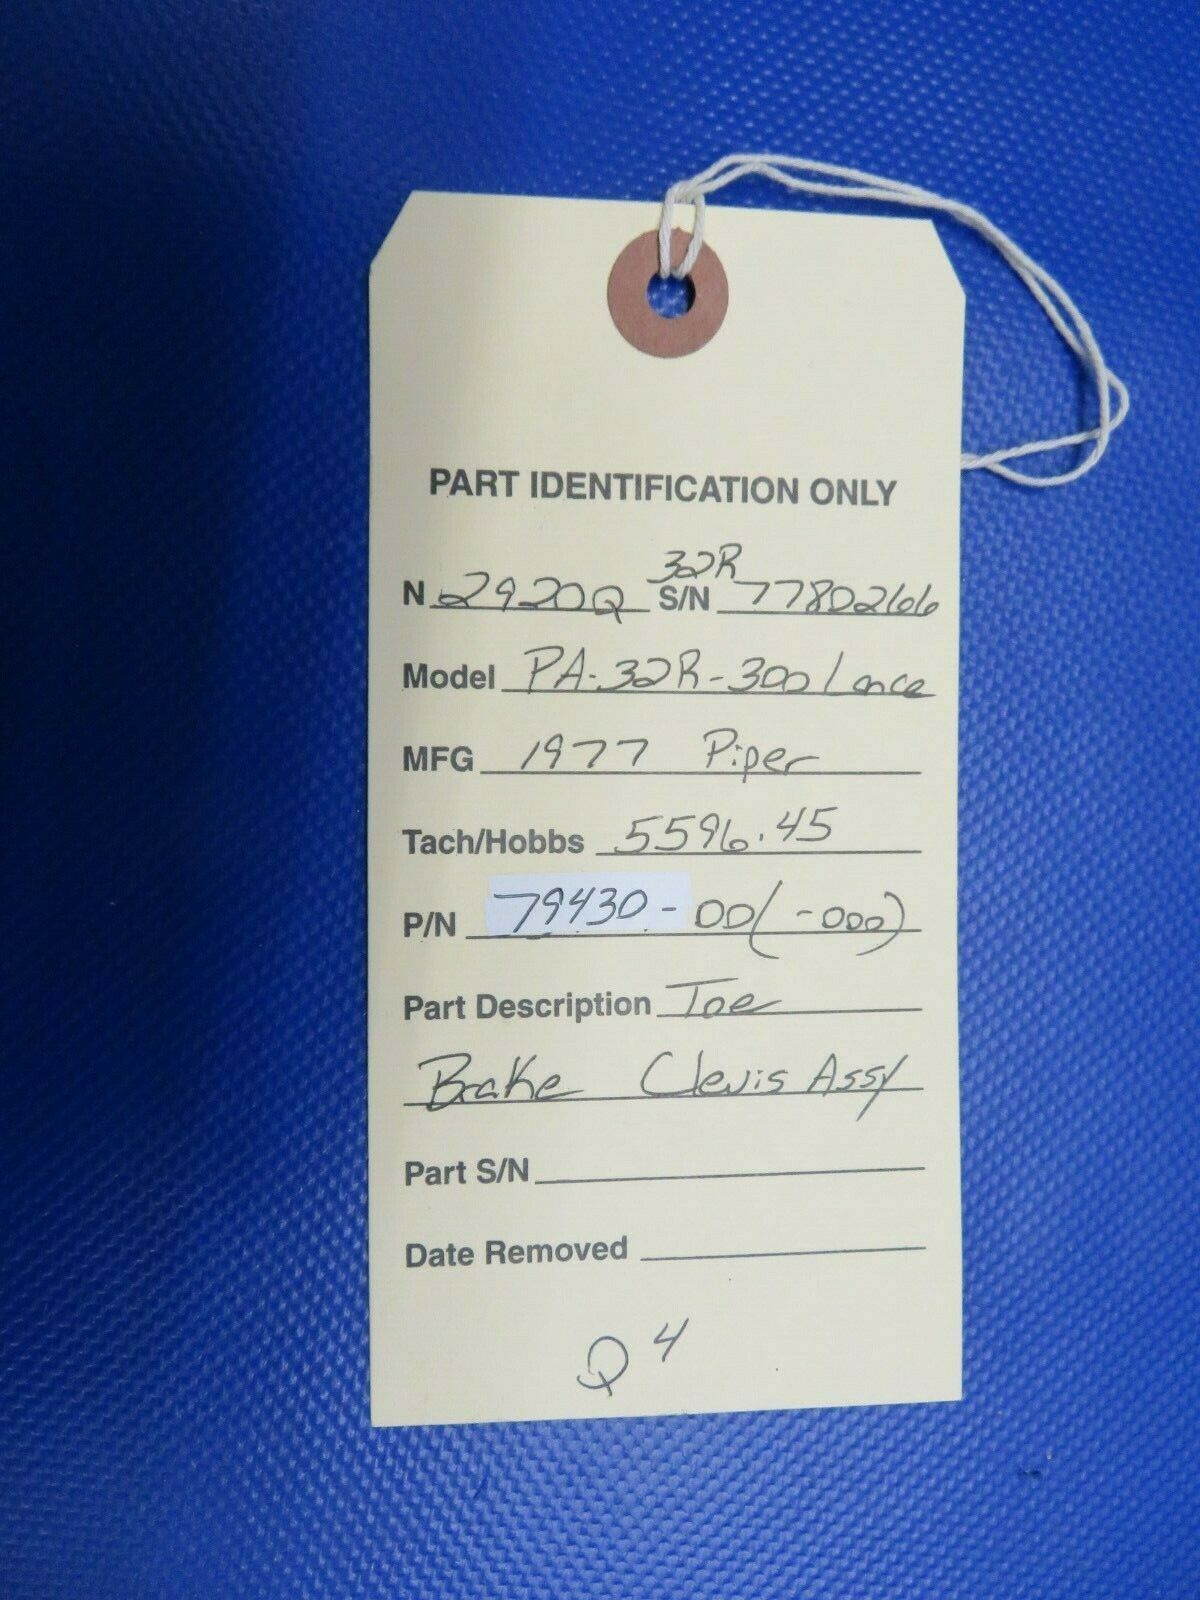 PART IDENTIFICATION ONLY
32R
N 2920Q S/N 7780266
Model PA-32R-300 Lance
MFG 1977 Piper
Tach/Hobbs 5596.45
P/N 79430-00(-000)
Part Description Toe
Brake Clevis Assy
Part S/N
Date Removed
Q4